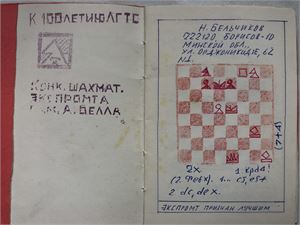 К 100ЛЕТИЮ ЛГТС
КОНК. ШАХМАТ.
ЭКСПРОМТА
А. БЕЛЛА
Н. БЕЛЬЧИКОВ
722120, БОРИСОВ-10
МИНСКОЙ ОБЛ.,
УЛ. ОРДЖОНИКИДЗЕ, 62
(7+4)
2х
1. Крd4!
1... c5, e5+
2 dc, dex.
ЭКСПРОМТ ПРИЗНАН ЛУЧШИМ